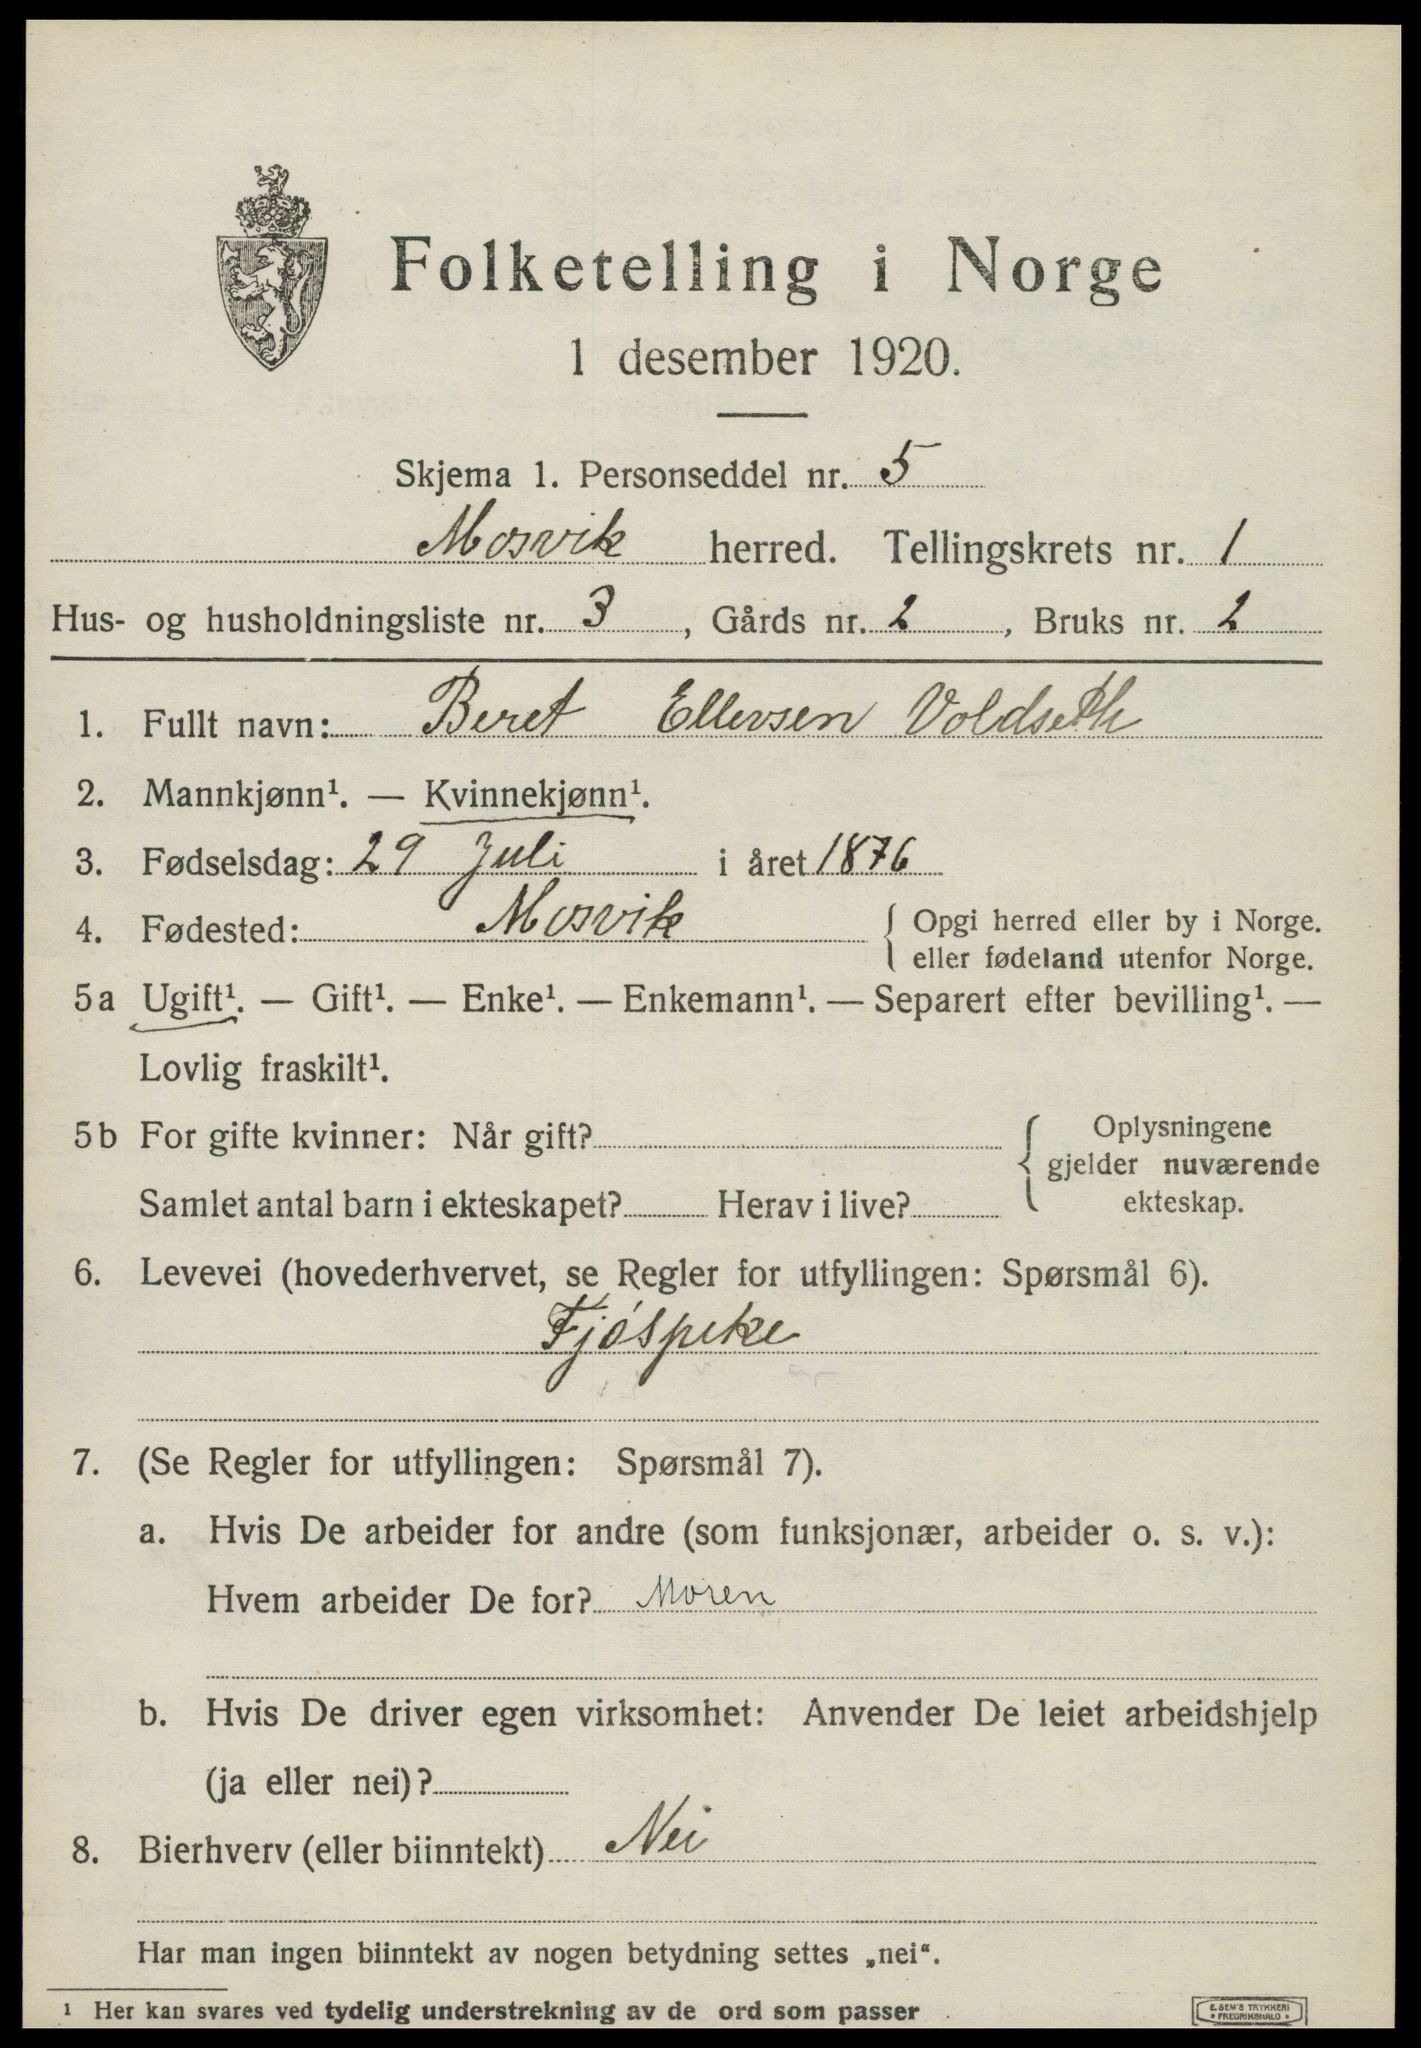 Folketelling i Norge
1 desember 1920.
Skjema 1. Personseddel nr. 5
Mosvik herred. Tellingskrets nr. 1
Hus- og husholdningsliste nr. 3, Gårds nr. 2, Bruks nr. 2
1. Fullt navn: Beret Ellevsen Voldseth
2. Mannkjønn¹. — Kvinnekjønn¹.
3. Fødselsdag: 29 Juli i året 1876
4. Fødested: Mosvik { Opgi herred eller by i Norge.
eller fødeland utenfor Norge.
5a Ugift¹. — Gift¹. — Enke¹. — Enkemann¹. — Separert efter bevilling¹. —
Lovlig fraskilt¹.
5b For gifte kvinner: Når gift? { Oplysningene
gjelder nuværende
Samlet antal barn i ekteskapet? Herav i live? ekteskap.
6. Levevei (hovederhvervet, se Regler for utfyllingen: Spørsmål 6).
Fjóspike
7. (Se Regler for utfyllingen: Spørsmål 7).
a. Hvis De arbeider for andre (som funksjonær, arbeider o. s. v.):
Hvem arbeider De for? Moren
b. Hvis De driver egen virksomhet: Anvender De leiet arbeidshjelp
(ja eller nei)?
8. Bierhverv (eller biinntekt) Nei
Har man ingen biinntekt av nogen betydning settes „nei“.
¹ Her kan svares ved tydelig understrekning av de ord som passer
E. SEM'S TRYKKERI
• FREDRIKSHALD •